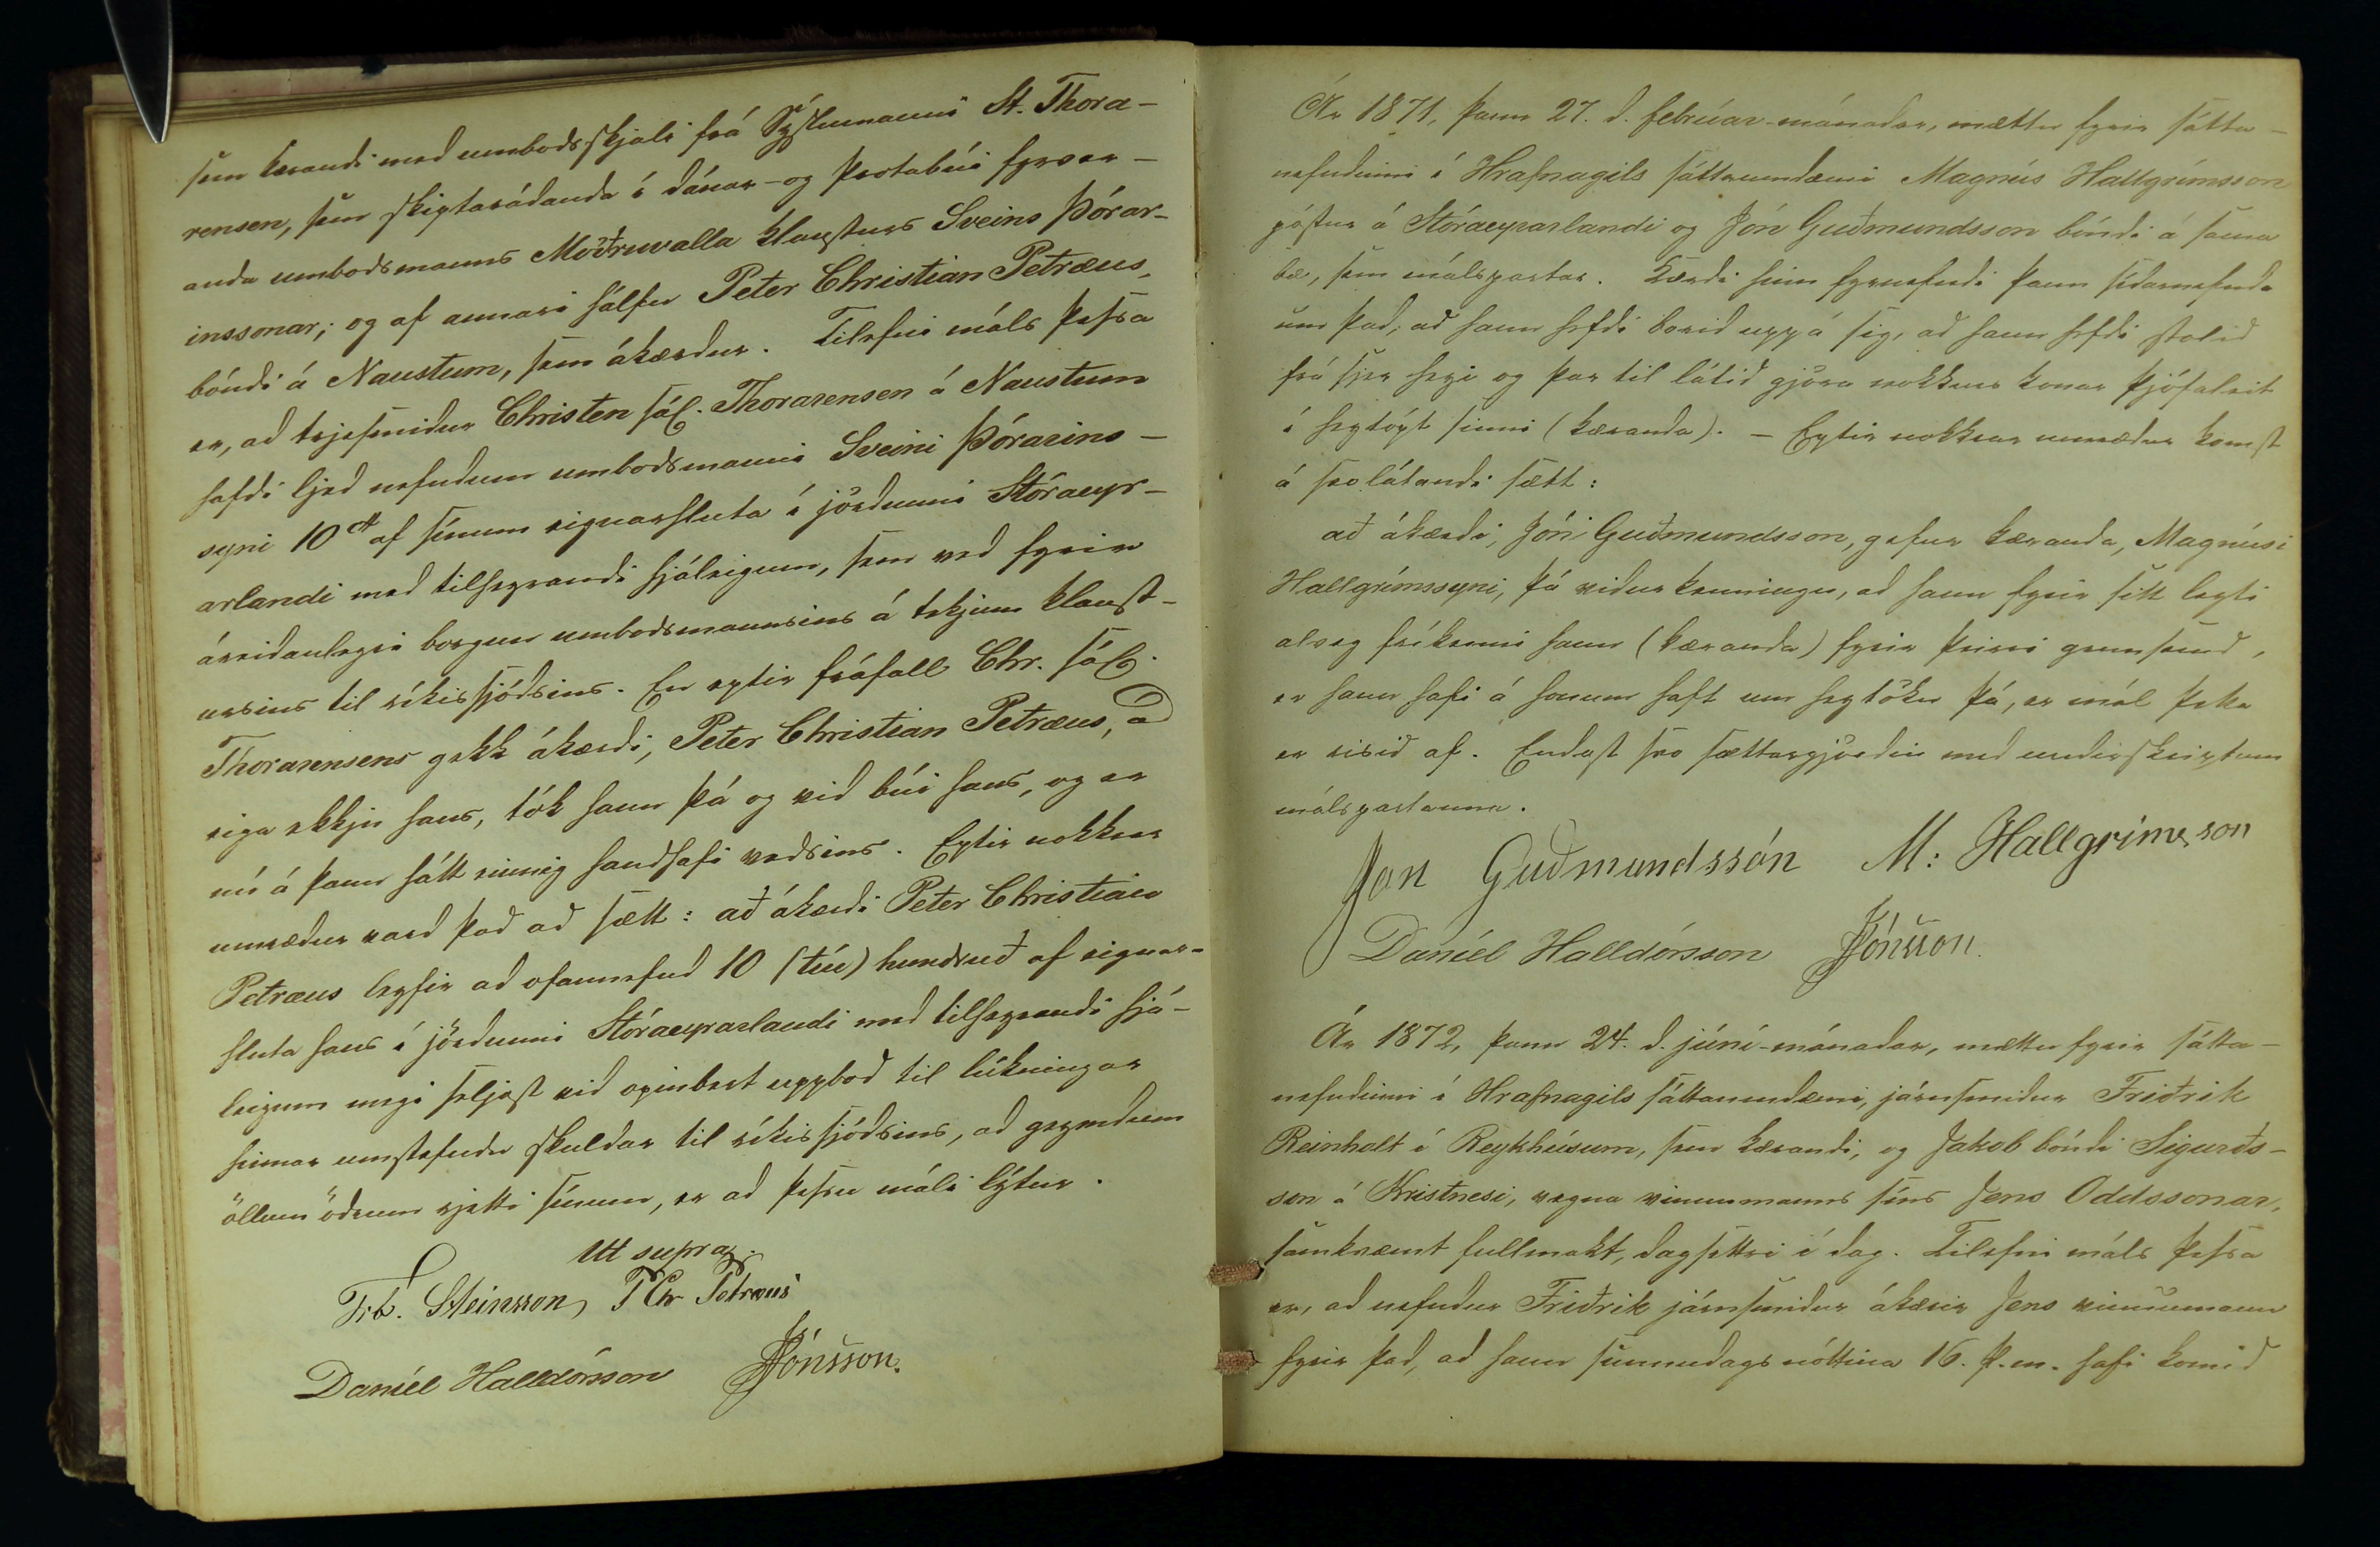 sem kærandi með umboðsskjali frá Sýslumanni St. Thora-
rensen, sem skiptaráðanda í dánar- og þrotabúi fyrver-
anda umboðsmanns Möðruvalla klausturs Sveins Þórar-
inssonar; og af annari hálfu Peter Christian Petræus,
bóndi á Naustum, sem ákærður. Tilefni máls þessa
er, að trjesmiður Christen sál. Thorarensen á Naustum
hafði ljeð nefndum umboðsmanni Sveini Þórarins-
syni 10 af sínum eignarhluta í jörðunni Stóraeyr-
arlandi með tilheyrandi hjáleigum, sem veð fyrir
áreiðanlegri borgun umboðsmannsins á tekjum klaust-
ursins til ríkissjóðsins. En eptir fráfall Chr. sál.
Thorarensens gekk ákærði, Peter Christian Petræus, að
eiga ekkju hans, tók hann þá og við búi hans, og er
nú á þann hátt einnig handhafi veðsins. Eptir nokkrar
umræður varð það að sætt: að ákærði Peter Christian
Petræus leyfir að ofannefnd 10 (tíu) hundruð af eignar-
hluta hans í jörðunni Stóraeyrarlandi með tilheyrandi hjá-
leigum megi seljast við opinbert uppboð til lúkningar
hinnar umstefndu skuldar til ríkissjóðsins, að geymdum
öllum öðrum rjetti sínum, er að þessu máli lýtur.
Ut supra.
Frb. Steinsson, P Chr Petræus
Daníel Halldórsson JJónsson.
Ár 1871, þann 27. d. febrúar-mánaðar, mættu fyrir sátta-
nefndinni í Hrafnagils sáttaumdæmi Magnús Hallgrímsson
póstur á Stóraeyrarlandi og Jón Guðmundsson bóndi á sama
bæ, sem málspartar. Kærði hinn fyrnefndi þann síðarnefnda
um það, að hann hefði borið uppá sig, að hann hefði stolið
frá sjer heyi og þar til látið gjöra nokkurs konar þjófaleit
í heytópt sinni (kæranda). – Eptir nokkrar umræður komst
á svolátandi sætt:
að ákærði, Jón Guðmundsson, gefur kæranda, Magnúsi
Hallgrímssyni, þá viðurkenningu, að hann fyrir sitt leyti
alveg fríkenni hann (kæranda) fyrir þeirri grunsemd,
er hann hafi á honum haft um heytöku þá, er mál þetta
er risið af. Endast svo sættargjörðin með undirskriptum
málspartanna.
Jón Guðmundssón M: Hallgrímsson
Daníel Halldórsson JJónsson.
Ár 1872, þann 24. d. júní-mánaðar, mættu fyrir sátta-
nefndinni í Hrafnagils sáttaumdæmi, járnsmiður Friðrik
Reinholt í Reykhúsum, sem kærandi, og Jakob bóndi Sigurðs-
son á Kristnesi, vegna vinnumanns síns Jens Oddssonar,
samkvæmt fullmakt, dagsettri í dag. Tilefni máls þessa
er, að nefndur Friðrik járnsmiður ákærir Jens vinnumann
fyrir það, að hann sunnudagsnóttina 16. þ.m. hafi komið